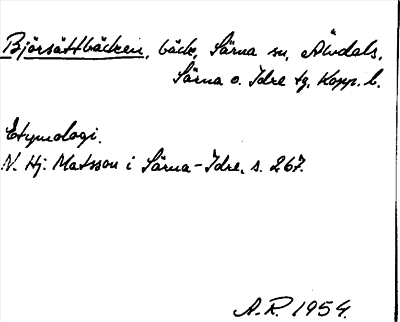 Björsättbäcken, bäck, Särna sn, Älvdals,
Särna o. Idre tg, Kopp. l.
Etymologi.
N. Hj. Matsson i Särna-Idre, s. 267.
A.R. 1954.